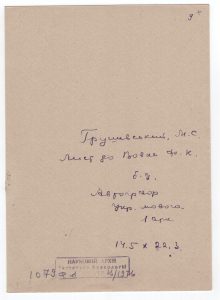 Грушевський, М.С.
Лист до Вовка Ф. К.
б.д.
Автограф
Укр. мовою.
1 арк.
14.5 х 22.3.
НАУКОВИЙ АРХІВ
1079